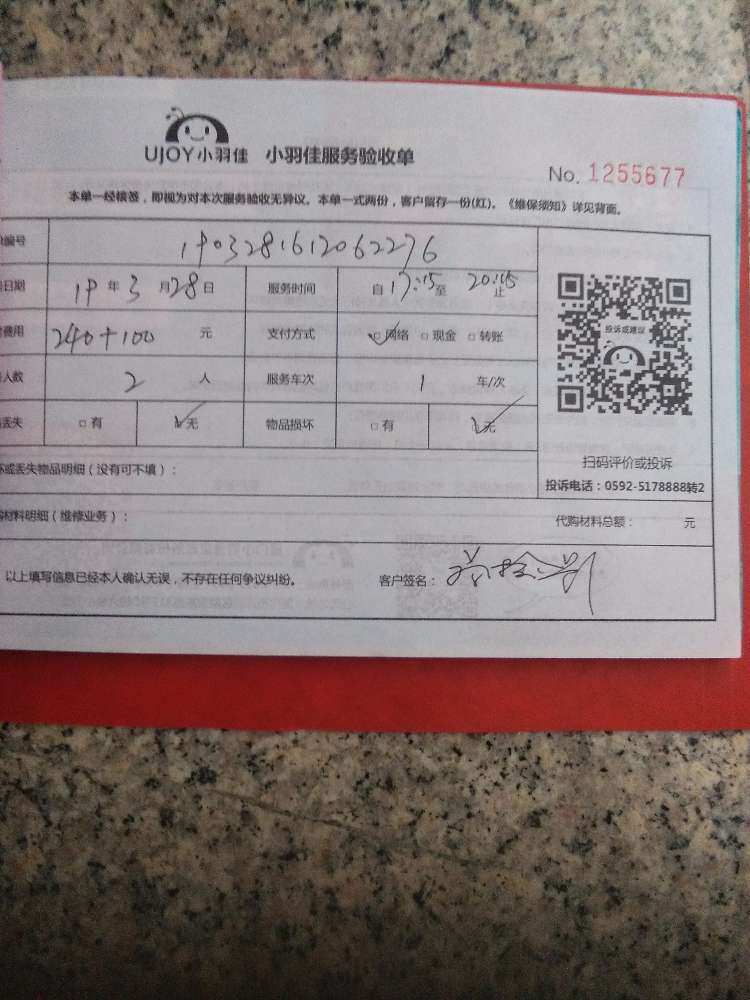 UJOY小羽佳 小羽佳服务验收单
No. 1255677
本单一经核签，即视为对本次服务验收无异议。本单一式两份，客户留存一份(红)。《维保须知》详见背面。
编号 1903281612062276
日期 19年3月28日 服务时间 自17:15至20:15止
费用 240+100 元 支付方式 ☑网络 □现金 □转账
人数 2 人 服务车次 1 车/次
丢失 □有 ☑无 物品损坏 □有 ☑无
投诉或建议
扫码评价或投诉
投诉电话：0592-5178888转2
坏或丢失物品明细（没有可不填）：
材料明细（维修业务）： 代购材料总额： 元
以上填写信息已经本人确认无误，不存在任何争议纠纷。 客户签名：